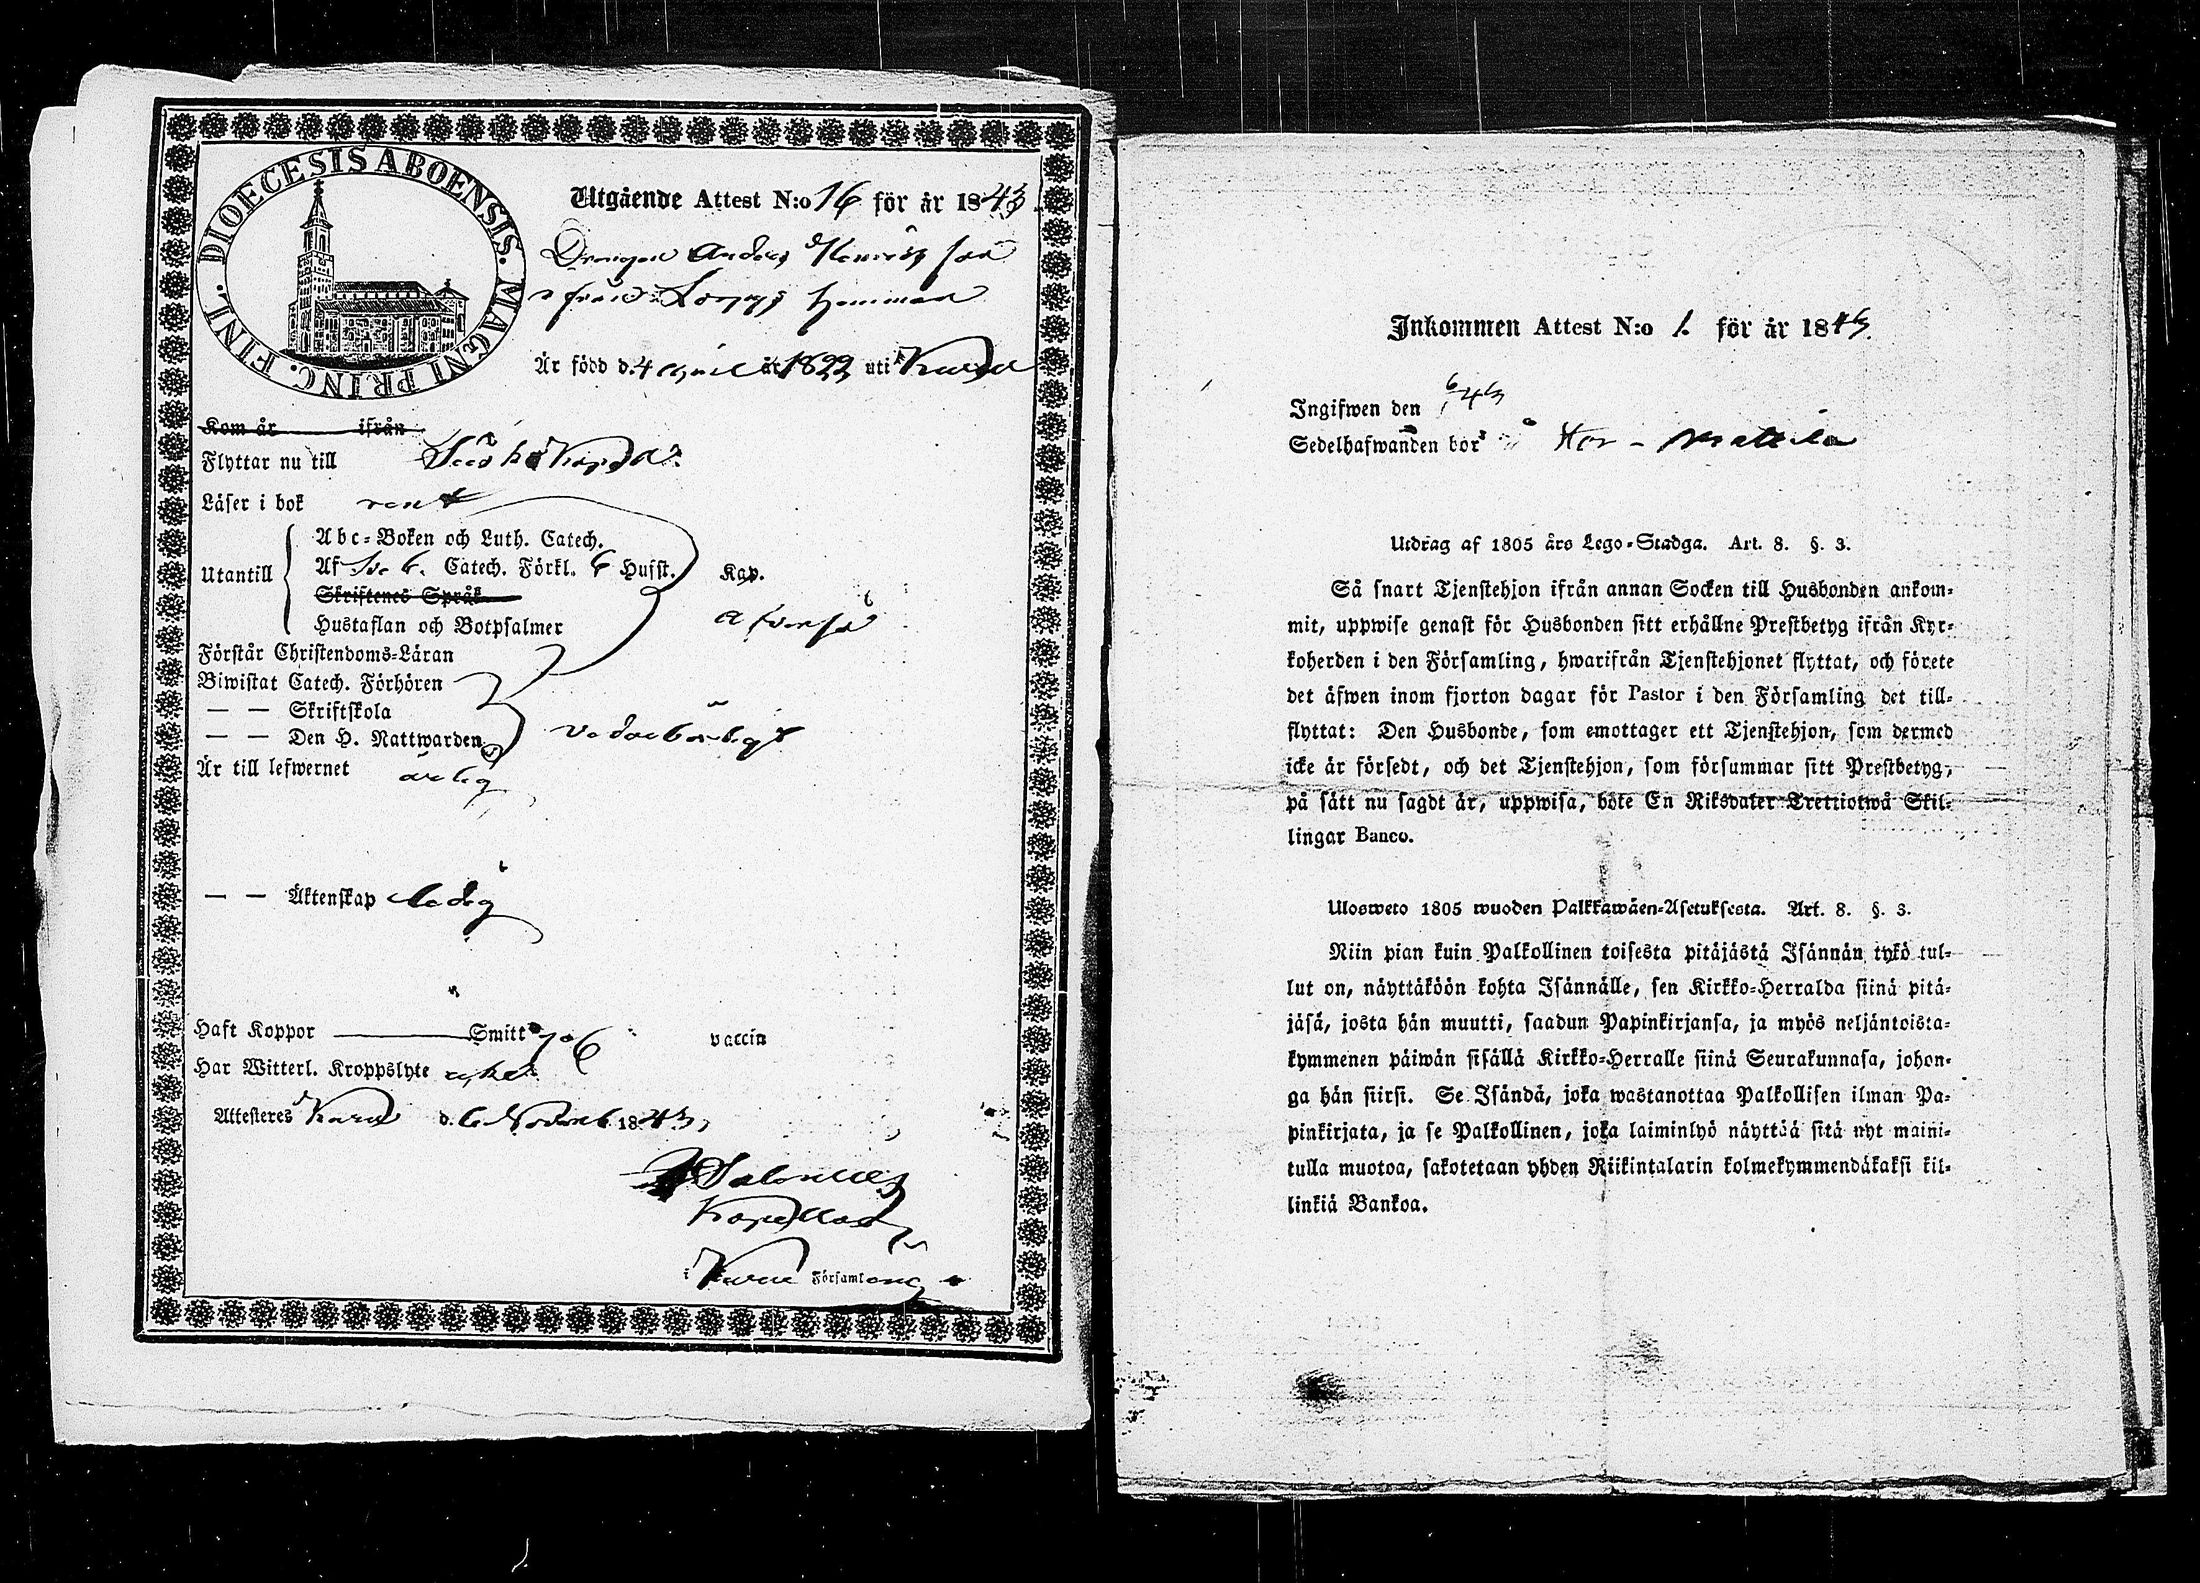 DIOECESIS ABOENSIS. MAGNI PRINC. FINL.
Utgående Attest N:o 16 för år 1843
Drängen Anders Henriks son
ifrån Loppis hemman
Är född d. 4 April år 1822 uti Karu
Kom år ifrån
Flyttar nu till
Läser i bok rent
Utantill
Abc-Boken och Luth. Catech.
Af Sv. b. Catech. Förkl. 6 Hufst. Kap.
Skriftenes Språk
Hustaflan och Botpsalmer
Förstår Christendoms-Läran
Biwistat Catech. Förhören
— — Skriftskola
— — Den H. Nattwarden
Är till lefwernet ärlig
— — Äktenskap ledig
Haft Koppor Smitt vaccin
Har Witterl. Kroppslyte icke
Attesteres Karu d. 6 Novemb 1843,
Salonius
Kapellan
i Karu Församling
Inkommen Attest N:o 1. för år 1843.
Ingifwen den
Sedelhafwanden bor
Utdrag af 1805 års Lego-Stadga. Art. 8. §. 3.
Så snart Tjenstehjon ifrån annan Socken till Husbonden ankom-
mit, uppwise genast för Husbonden sitt erhållne Prestbetyg ifrån Kyr-
koherden i den Församling, hwarifrån Tjenstehjonet flyttat, och förete
det äfwen inom fjorton dagar för Pastor i den Församling det till-
flyttat: Den Husbonde, som emottager ett Tjenstehjon, som dermed
icke är försedt, och det Tjenstehjon, som försummar sitt Prestbetyg,
på sätt nu sagdt är, uppwisa, böte En Riksdaler Trettiotwå Skil-
lingar Banco.
Ulosweto 1805 wuoden Palkkawäen-Asetuksesta. Art. 8. §. 3.
Niin pian kuin Palkollinen toisesta pitäjästä Isännän tykö tul-
lut on, näyttäköön kohta Isännälle, sen Kirkko-Herralda siinä pitä-
jäsä, josta hän muutti, saadun Papinkirjansa, ja myös neljäntoista-
kymmenen päiwän sisällä Kirkko-Herralle siinä Seurakunnasa, johon-
ga hän siirsi. Se Isändä, joka wastanottaa Palkollisen ilman Pa-
pinkirjata, ja se Palkollinen, joka laiminlyö näyttää sitä nyt maini-
tulla muotoa, sakotetaan yhden Riikintalarin kolmekymmendäkaksi kil-
linkiä Bankoa.